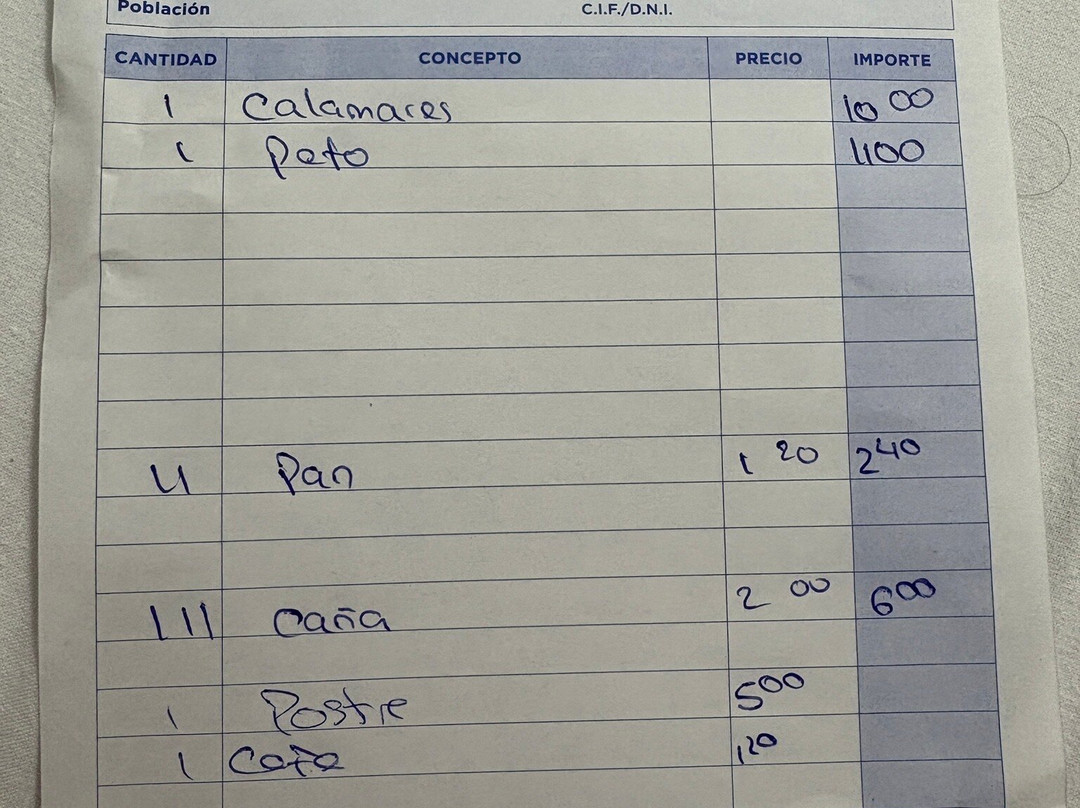 Población C.I.F./D.N.I.
CANTIDAD CONCEPTO PRECIO IMPORTE
1 Calamares 10 00
1 Pato 1100
II Pan 1 20 2 40
III Caña 2 00 6 00
1 Postre 5 00
1 Cafe 1 20